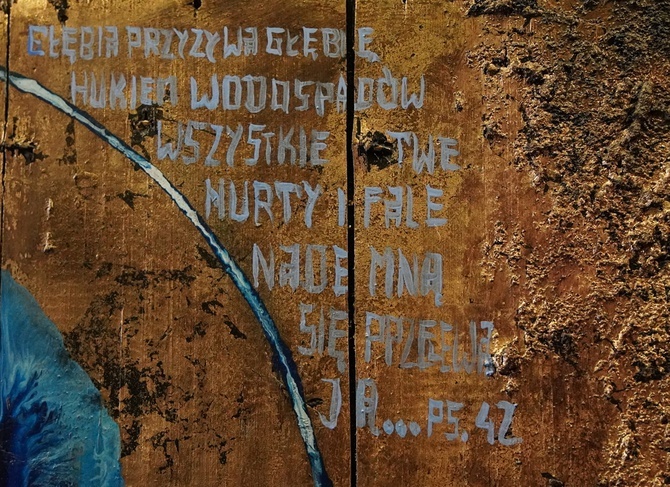 GŁĘBIA PRZYZYWA GŁĘBIĘ
HUKIEM WODOSPADÓW
WSZYSTKIE TWE
NURTY I FALE
NADE MNĄ
SIĘ PRZEWA
JĄ.... PS. 42